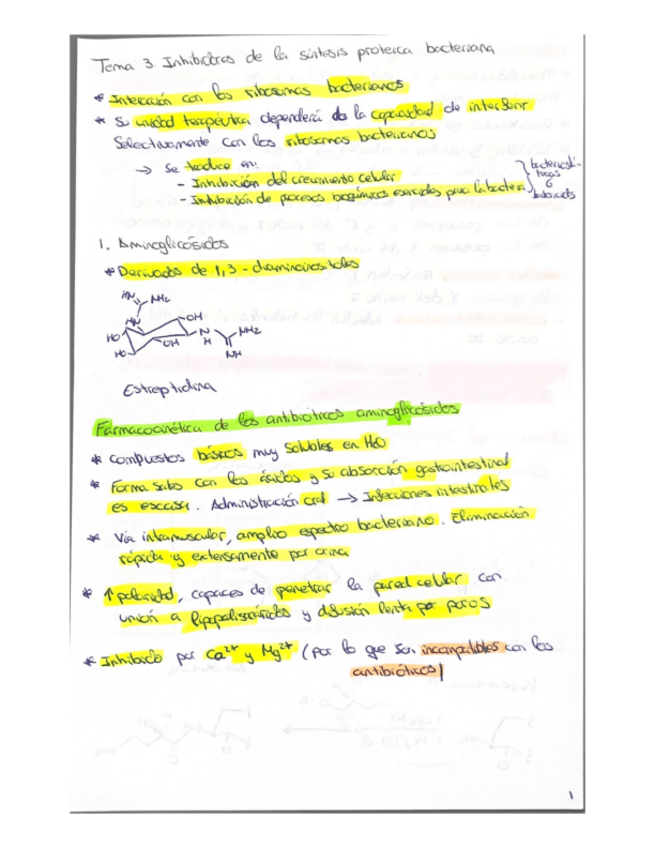 Tema 3. Inhibidores de la síntesis proteica bacteriana
* Interacción con los ribosomas bacterianos
* Su unidad terapéutica dependerá de la capacidad de interferir
Selectivamente con los ribosomas bacterianos
→ Se traduce en:
- Inhibición del crecimiento celular
- Inhibición de procesos bioquímicos esenciales para la bacteria
bacteriostá-
ticos
o
1. Aminoglicósidos
* Derivados de 1,3-diaminoinositoles
HN NH2
HN OH
HO N NH2
OH H
HO NH
Estreptidina
Farmacocinética de los antibióticos aminoglicósidos
* Compuestos básicos muy solubles en H2O
* Forma sales con los ácidos y su absorción gastrointestinal
es escasa. Administración oral → Infecciones intestinales
* Vía intramuscular, amplio espectro bacteriano. Eliminación
rápida y extensamente por orina
* ↑ polaridad, capaces de penetrar la pared celular con
unión a lipopolisacáridos y difusión lenta por poros
* Inhibido por Ca2+ y Mg2+ (por lo que son incompatibles con los
antibióticos)
1